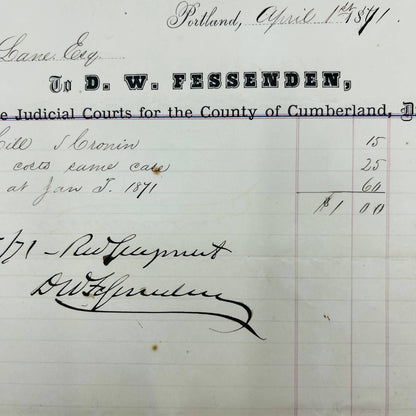 Portland, April 1st 1871.
Lane Esq
To D. W. FESSENDEN,
e Judicial Courts for the County of Cumberland, D
ill v Cronin 15
costs same case 25
at Jan T. 1871 60
$1 00
/71 - Rec'd payment
DWFessenden